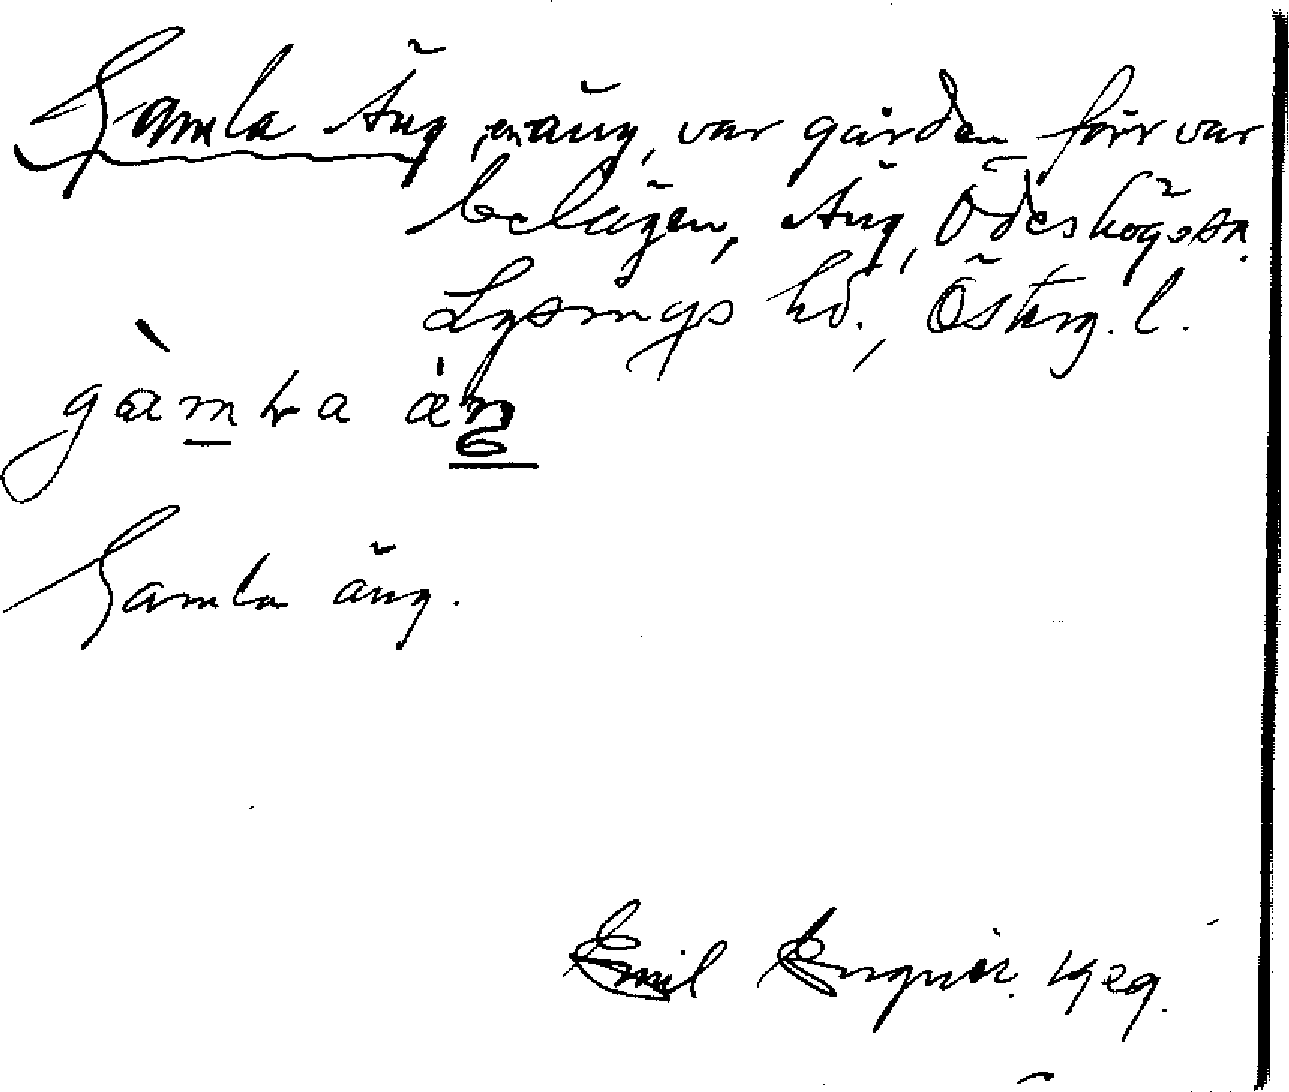 Gamla Äng, en äng, var gården förr var
belägen, Äng, Ödeshögs sn.
Lysings hd., Österg. l.
gàmla äŋ
Gamla äng.
Emil 1929.